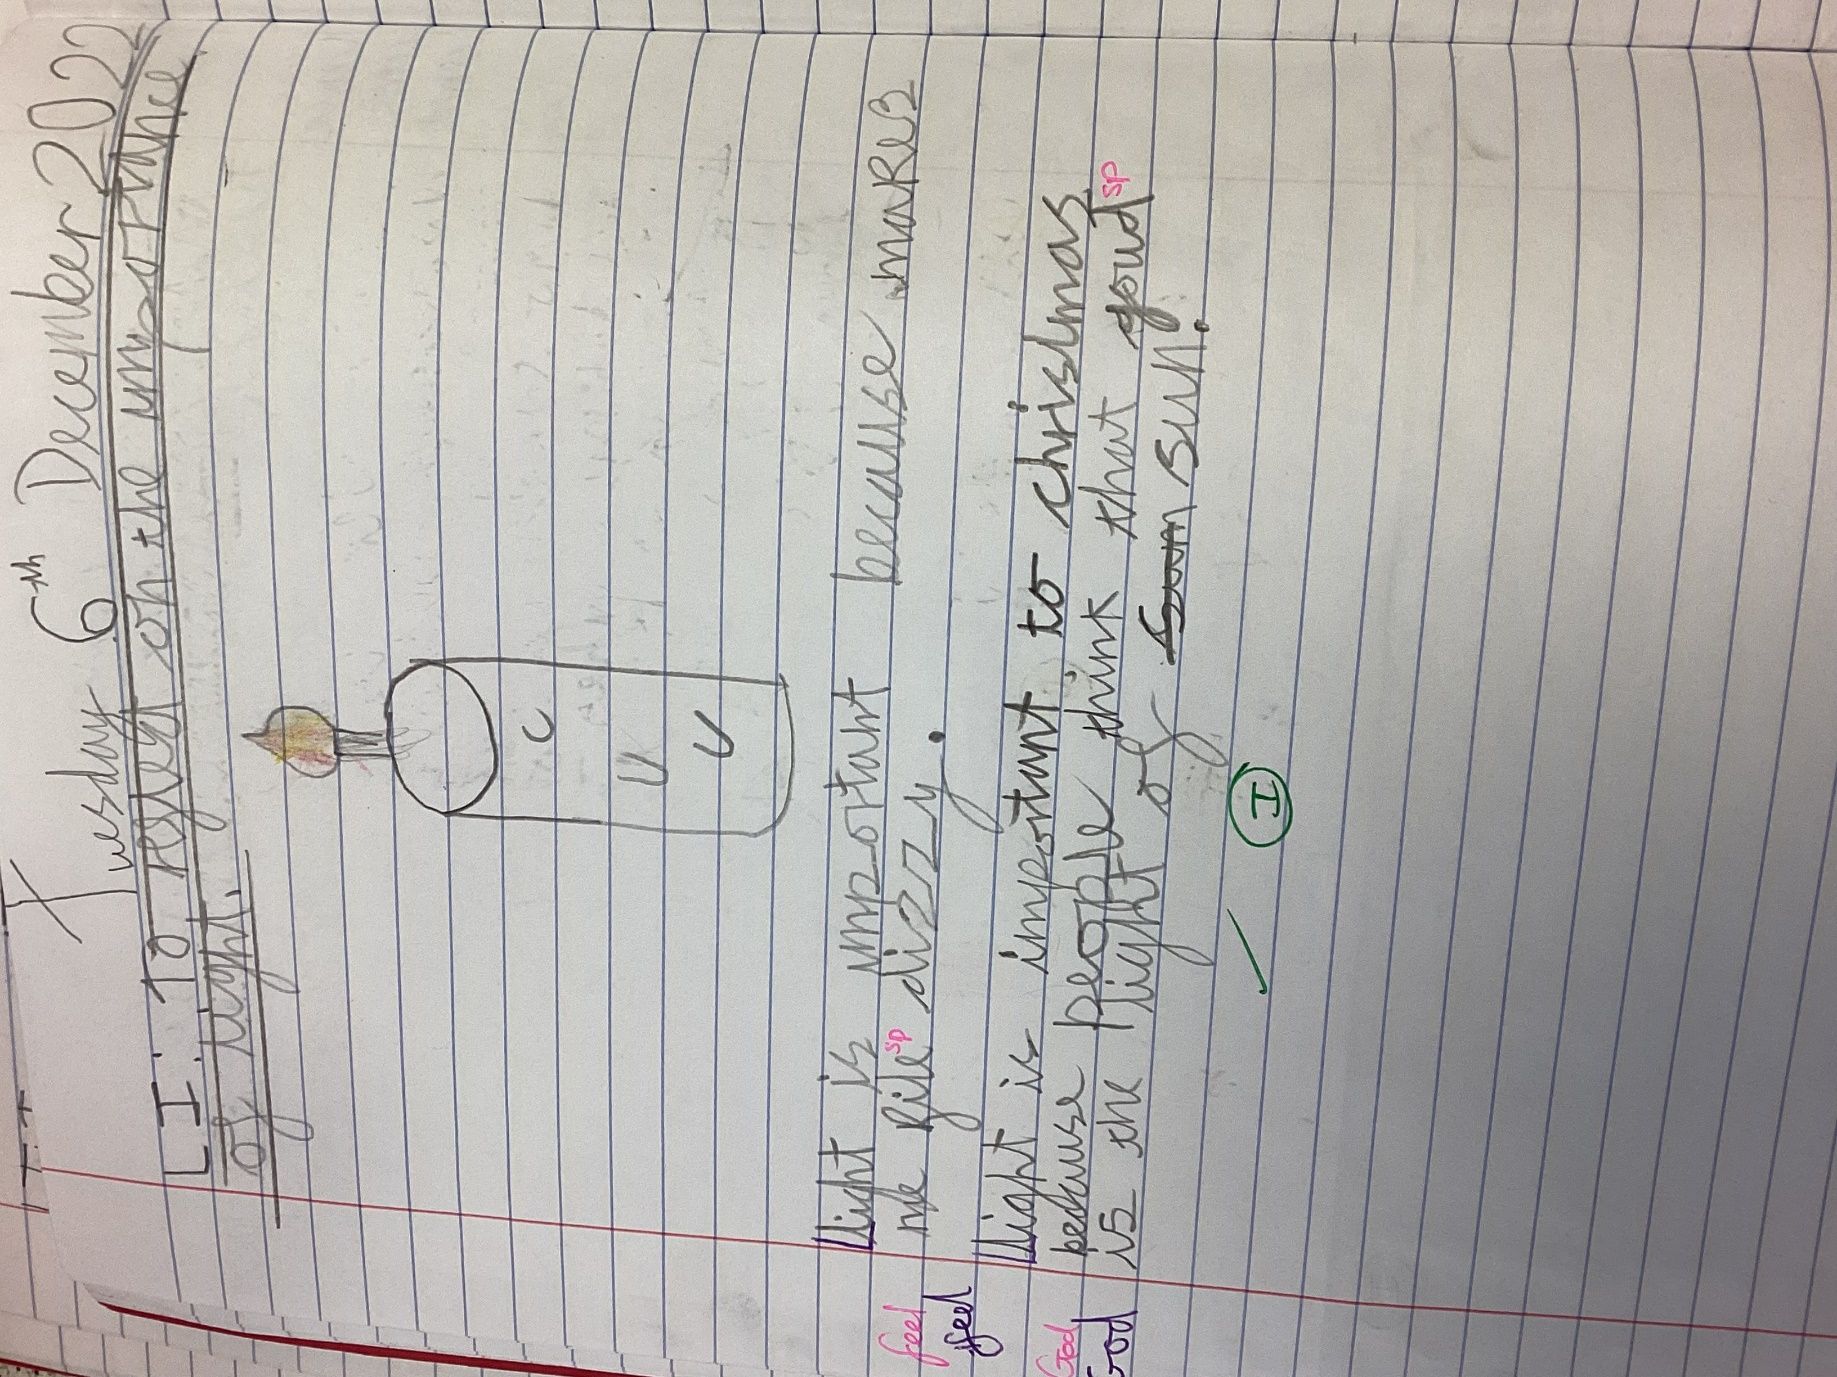 Tuesday 6th December 2022
LI: To reflect on the importance
of light.
Light is important because makes
feel me file sp dizzy.
feel
Light is important to chrismas
God because people think that goud sp
God is the light of soun sun.
I